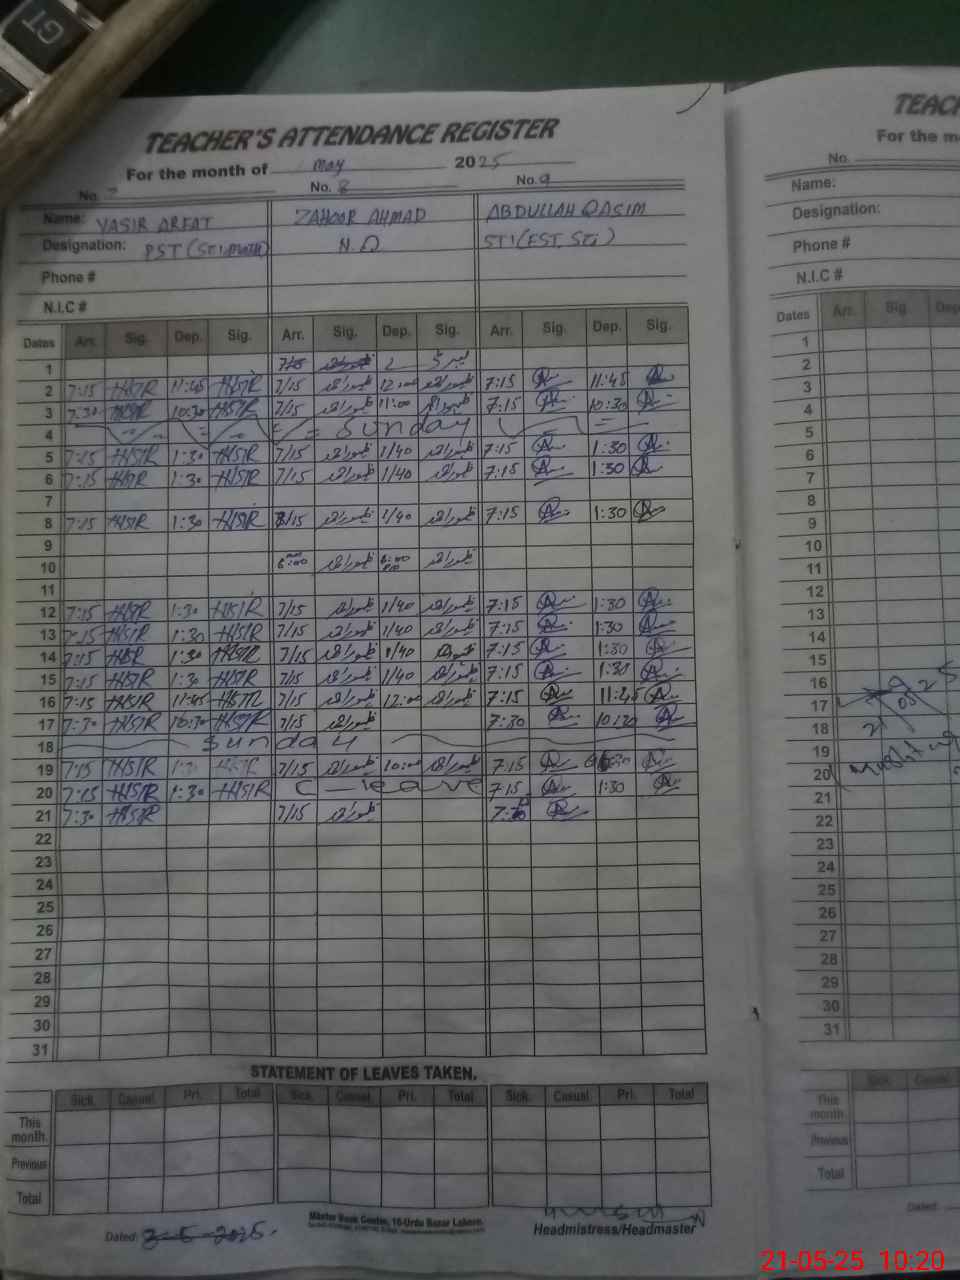 GT
TEACHER'S ATTENDANCE REGISTER
For the month of May 2025
No. 7 No. 8 No. 9
Name: YASIR ARFAT ZAHOOR AHMAD ABDULLAH QASIM
Designation: PST N.Q STI (EST, STI)
Phone #
N.I.C #
Dates Arr. Sig. Dep. Sig. Arr. Sig. Dep. Sig. Arr. Sig. Dep. Sig.
1 ظہور احمد 2
2 7:15 11:45 7/15 ظہور احمد 12:00 ظہور احمد 7:15 11:45
3 7:30 10:30 7/15 ظہور احمد 11:00 ظہور احمد 7:15 10:30
4 Sunday
5 7:15 1:30 7/15 ظہور احمد 1/40 ظہور احمد 7:15 1:30
6 7:15 1:30 7/15 ظہور احمد 1/40 ظہور احمد 7:15 1:30
7
8 7:15 1:30 7/15 ظہور احمد 1/40 ظہور احمد 7:15 1:30
9
10 6:00 ظہور احمد 6:00 ظہور احمد
11
12 7:15 1:30 7/15 ظہور احمد 1/40 ظہور احمد 7:15 1:30
13 7:15 1:30 7/15 ظہور احمد 1/40 ظہور احمد 7:15 1:30
14 7:15 1:30 7/15 ظہور احمد 1/40 ظہور احمد 7:15 1:30
15 7:15 1:30 7/15 ظہور احمد 1/40 ظہور احمد 7:15 1:30
16 7:15 11:45 7/15 ظہور احمد 12:00 ظہور احمد 7:15 11:45
17 7:30 10:30 7/15 ظہور احمد 7:30 10:30
18 Sunday
19 7:15 1:30 7/15 ظہور احمد 10:00 ظہور احمد 7:15
20 7:15 1:30 C-leave 7:15 1:30
21 7:30 7/15 ظہور احمد
22
23
24
25
26
27
28
29
30
31
STATEMENT OF LEAVES TAKEN.
Sick. Casual. Pri. Total Sick. Casual. Pri. Total Sick. Casual. Pri. Total
This month.
Previous
Total
Dated: 2-5-2025.
Master Book Center, 16-Urdu Bazar Lahore.
Headmistress/Headmaster
TEACH
For the m
No.
Name:
Designation:
Phone #
N.I.C #
Dates Arr. Sig. Dep
1
2
3
4
5
6
7
8
9
10
11
12
13
14
15
16
17
18
19
20
21
22
23
24
25
26
27
28
29
30
31
Sick. Casual
This month.
Previous
Total
Dated:
21-05-25 10:20